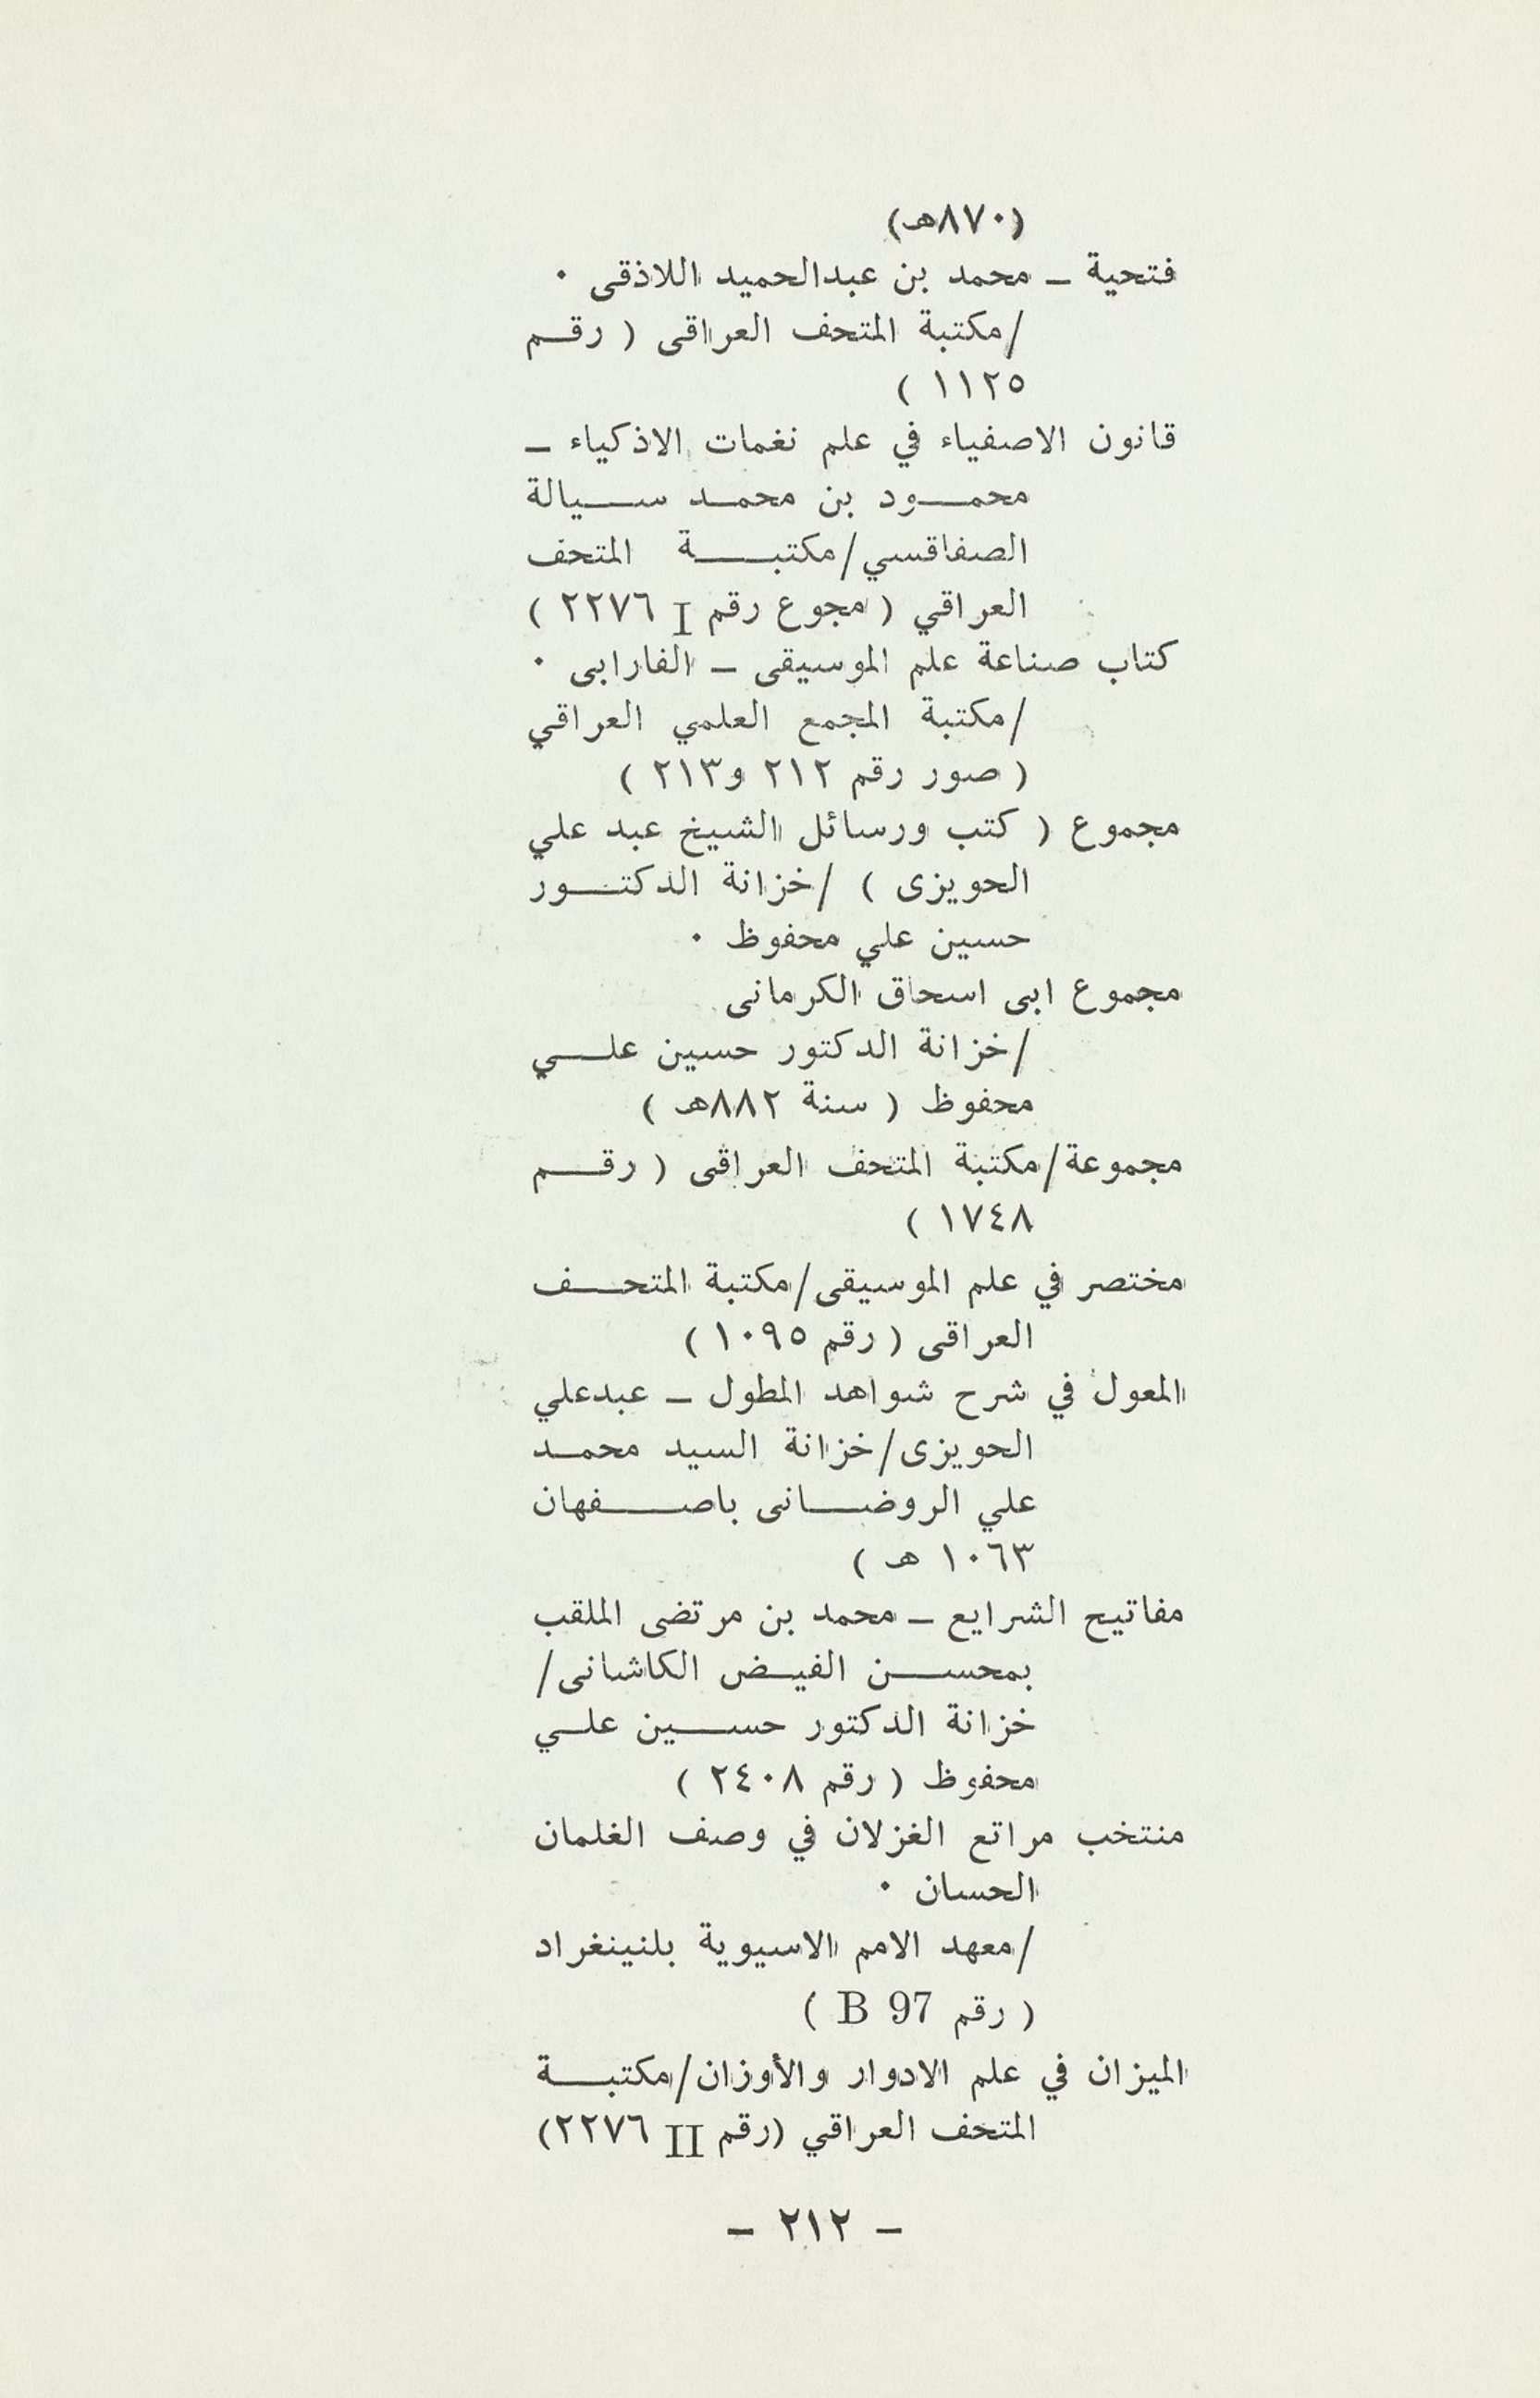 (٨٧٠هـ)
فتحية ـ محمد بن عبدالحميد اللاذقى ٠
/مكتبة المتحف العراقى ( رقـم
١١٢٥ )
قانون الاصفياء في علم نغمات الاذكياء ـ
محمــود بن محمـد ســيالة
الصفاقسي/مكتبــة المتحف
العراقي ( مجوع رقم I ٢٢٧٦ )
كتاب صناعة علم الموسيقى ـ الفارابى ٠
/مكتبة المجمع العلمي العراقي
( صور رقم ٢١٢ و٢١٣ )
مجموع ( كتب ورسائل الشيخ عبد علي
الحويزى ) /خزانة الدكتــور
حسين علي محفوظ ٠
مجموع ابى اسحاق الكرمانى
/خزانة الدكتور حسين علــي
محفوظ ( سنة ٨٨٢هـ )
مجموعة/مكتبة المتحف العراقى ( رقــم
١٧٤٨ )
مختصر في علم الموسيقى/مكتبة المتحــف
العراقى ( رقم ١٠٩٥ )
المعول في شرح شواهد المطول ـ عبدعلي
الحويزى/خزانة السيد محمـد
علي الروضــانى باصــفهان
١٠٦٣ هـ )
مفاتيح الشرايع ـ محمد بن مرتضى الملقب
بمحســن الفيـض الكاشانى/
خزانة الدكتور حســين علـي
محفوظ ( رقم ٢٤٠٨ )
منتخب مراتع الغزلان في وصف الغلمان
الحسان ٠
/معهد الامم الاسيوية بلنينغراد
( رقم B 97 )
الميزان في علم الادوار والأوزان/مكتبــة
المتحف العراقي (رقم II ٢٢٧٦)
ـ ٢١٢ ـ